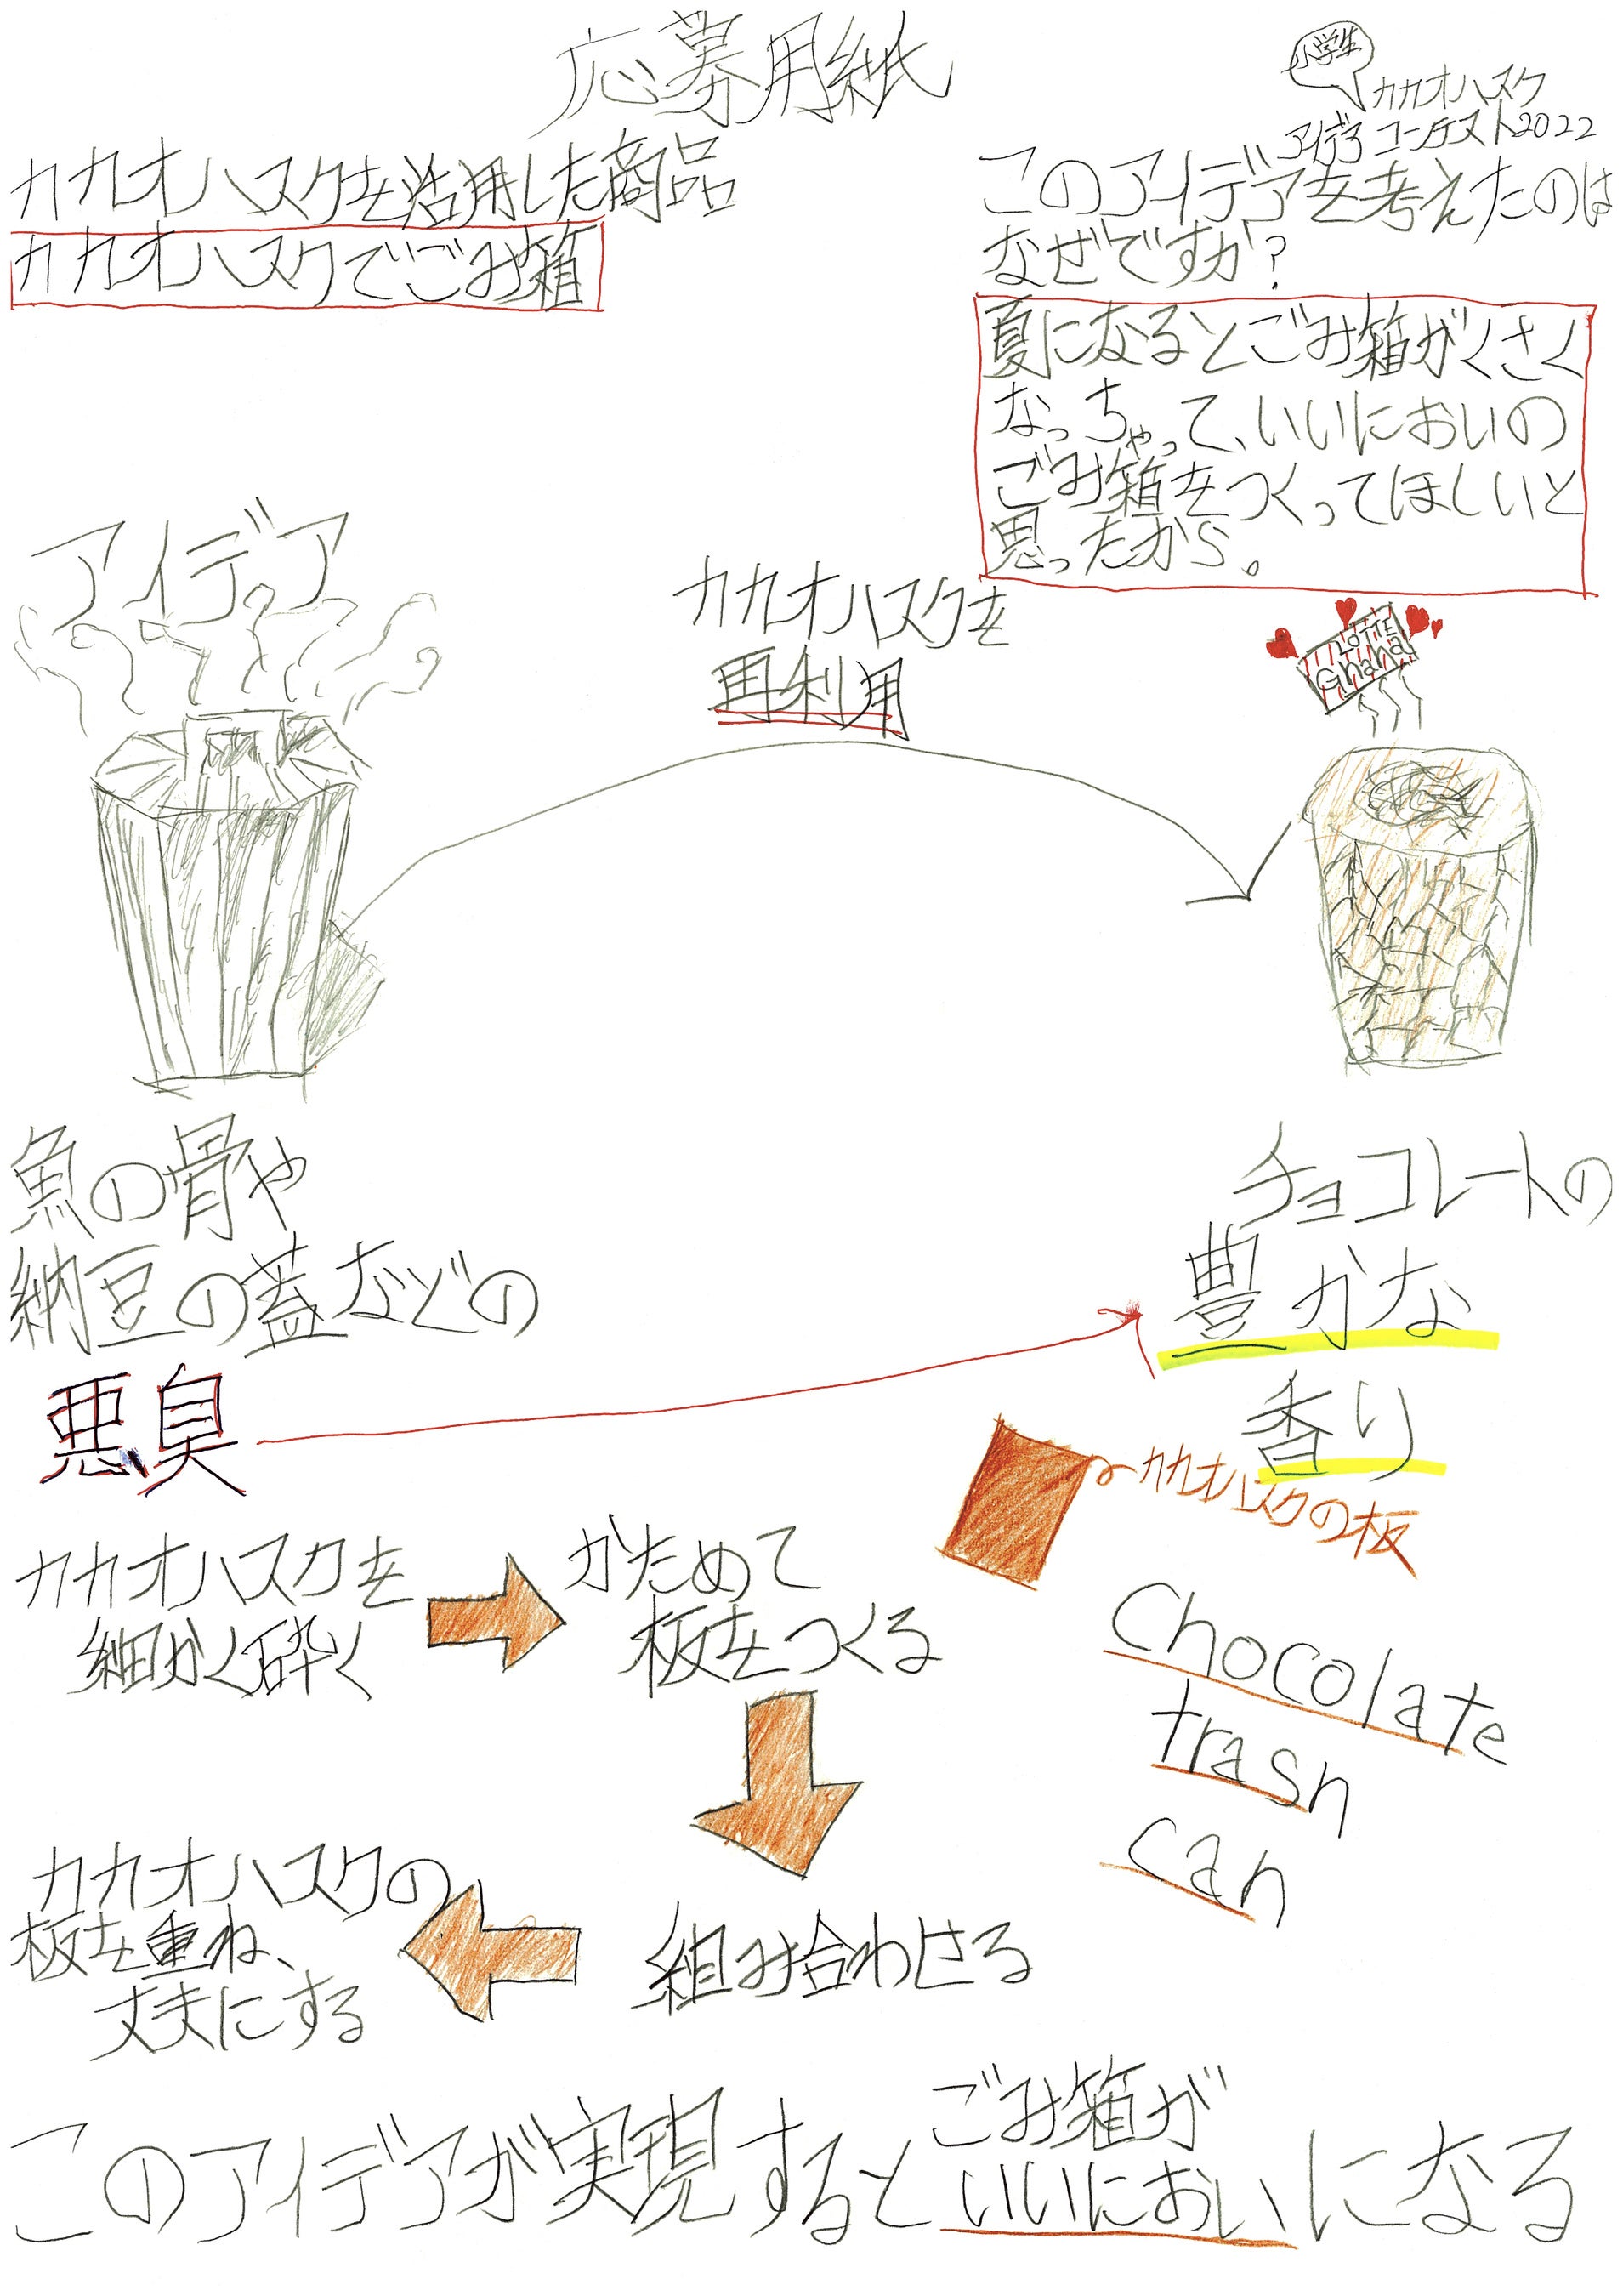 応募用紙
小学生
カカオハスク
アイデアコンテスト2022
カカオハスクを活用した商品
カカオハスクでごみ箱
このアイデアを考えたのは
なぜですか?
夏になるとごみ箱がくさく
なっちゃって、いいにおいの
ごみ箱をつくってほしいと
思ったから。
アイデア
カカオハスクを
再利用
LOTTE
Ghana
魚の骨や
納豆の蓋などの
悪臭
チョコレートの
豊かな
香り
カカオハスクの板
カカオハスクを
細かく砕く
かためて
板をつくる
Chocolate
trash
can
組み合わせる
カカオハスクの
板を重ね、
丈夫にする
このアイデアが実現すると
ごみ箱が
いいにおいになる